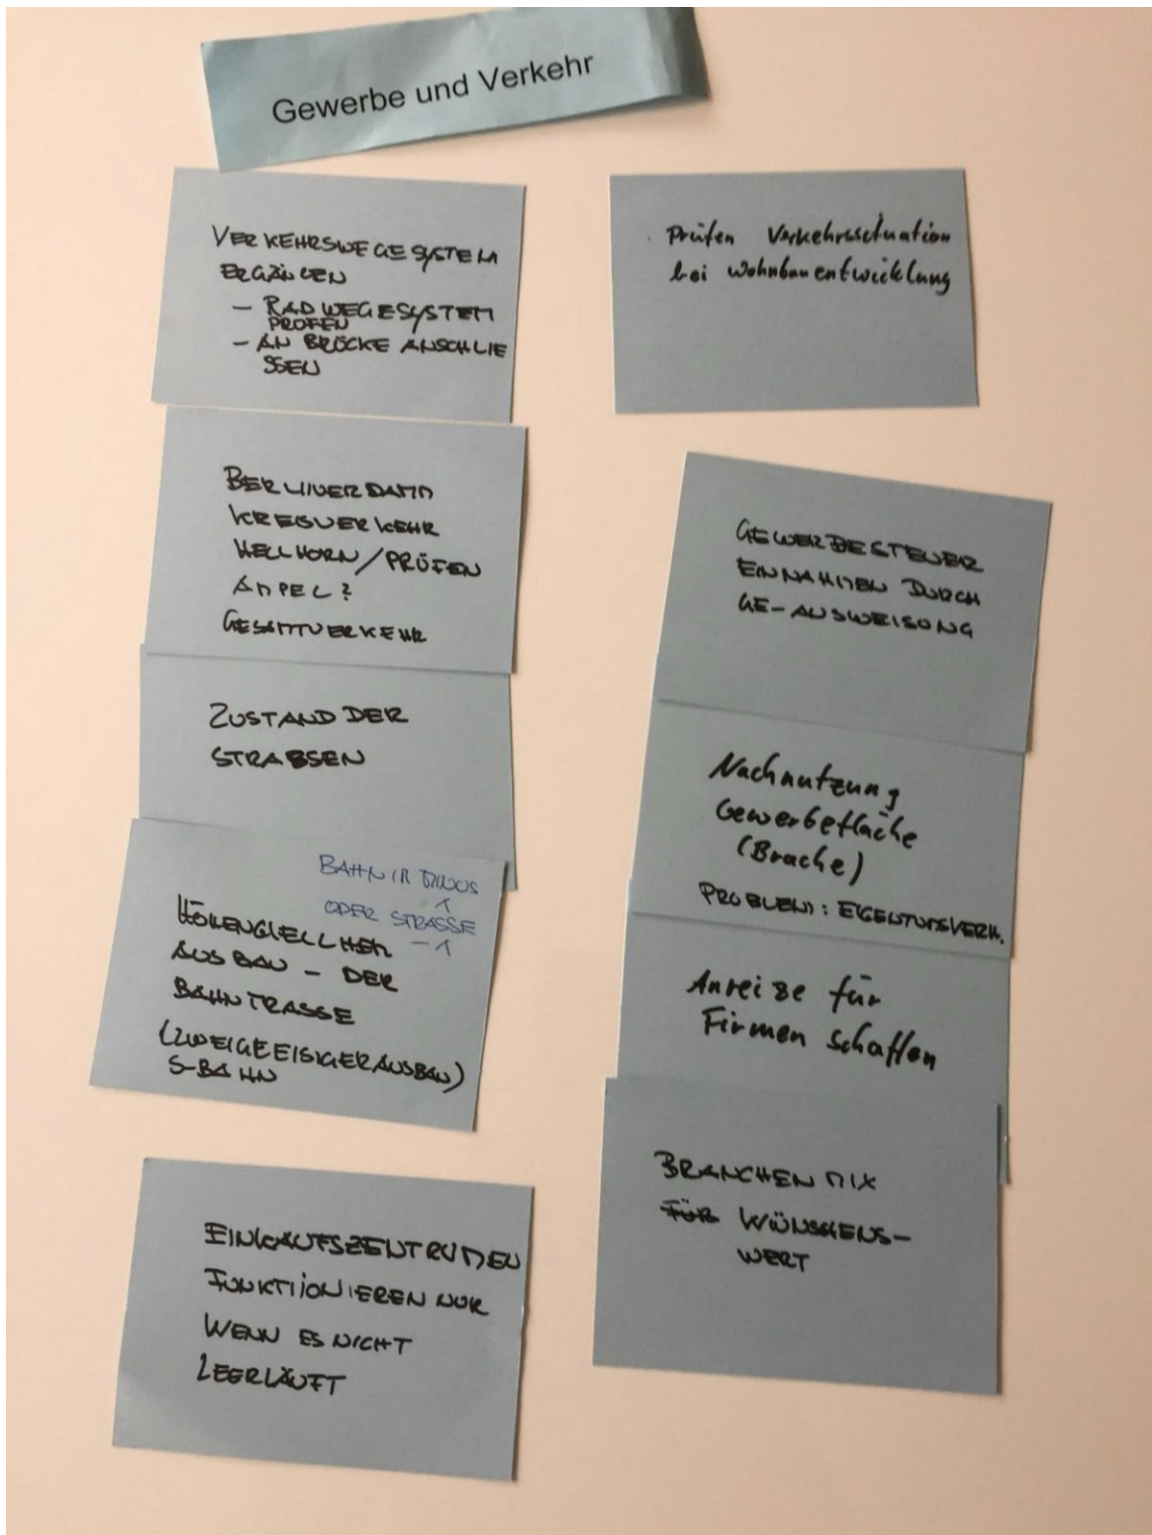 Gewerbe und Verkehr
VERKEHRSWEGESYSTEM
ERGÄNZEN
- RADWEGESYSTEM
PRÜFEN
- AN BRÜCKE ANSCHLIE
SSEN
BERLINER DAMM
KREISVERKEHR
/ PRÜFEN
AMPEL?
GESAMTVERKEHR
ZUSTAND DER
STRAßSEN
BAHN IN MINUS
1
ODER STRASSE
-1
HÖHENGLEICHER
AUSBAU - DER
BAHNTRASSE
(ZWEIGLEISIGER AUSBAU)
S-BAHN
EINKAUFSZENTRUMEN
FUNKTIONIEREN NUR
WENN ES NICHT
LEERLÄUFT
Prüfen Verkehrssituation
bei Wohnbauentwicklung
GEWERBESTEUER
EINNAHMEN DURCH
GE-AUSWEISUNG
Nachnutzung
Gewerbefläche
(Brache)
PROBLEM: EIGENTUMSVERH.
Anreize für
Firmen schaffen
BRANCHENMIX
FÜR WÜNSCHENS-
WERT